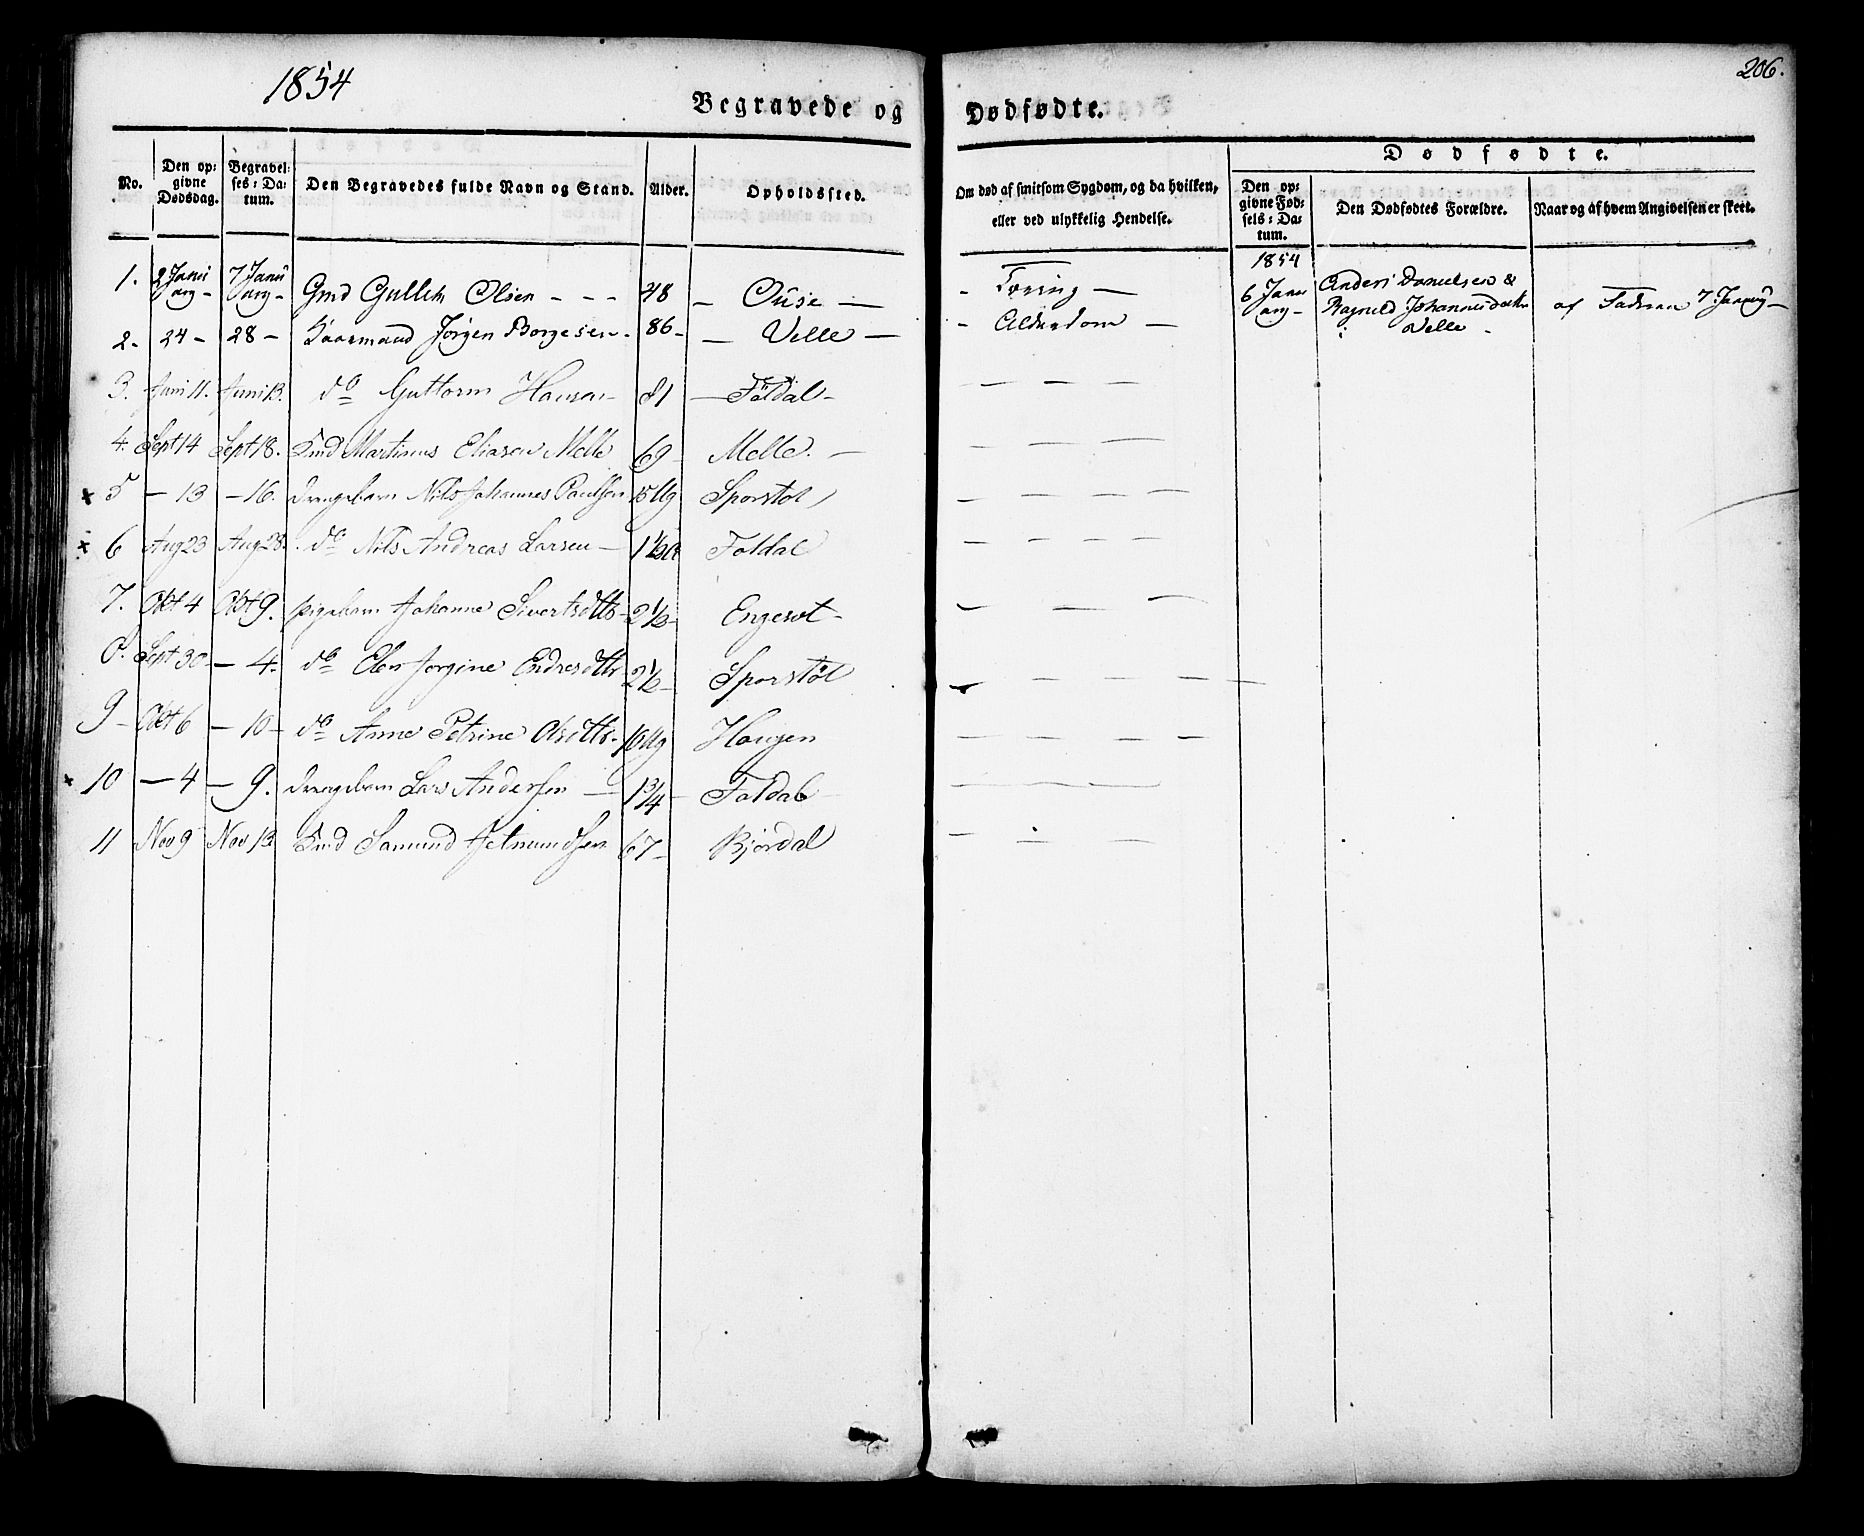 1854
206.
Begravede og Dødfødte.
No.
Den opgivne Dødsdag.
Begravelses-Datum.
Den Begravedes fulde Navn og Stand.
Alder.
Opholdssted.
Om død af smitsom Sygdom, og da hvilken, eller ved ulykkelig Hendelse.
Dødfødte.
Den opgivne Fødsels-Datum.
Den Dødfødtes Forældre.
Naar og af hvem Angivelsen er skeet.
1. 2 Janu ary – 7 Janu ary – Gmd Olsen – – – 48 – – – Tæring –
2. 24 – 28 – Kaarmand Jørgen Borgesen – 86 – – Velle – – Alderdom –
3. Juni 11. Juni 13. do Guttorm Hansen – 81 – Foldal – – – –
4. Sept 14 Sept 18. Kmd Martinus Eliasen Melle 69 Melle. – – – –
x 5 – 13 – 16. Drengebarn Nils Johannes Paulsen 15 Ug Sporstøl – – – –
x 6 Aug 23 Aug 28. do Nils Andreas Larsen – 1 1/2 Foldal – – – –
7. Okt 4 Okt 9. pigebarn Johanne Sivertsdttr – 2 1/2 – Engeset – – – –
8. Sept 30 – 4. do Elen Jorgine Endresdttr 2 1/2 – Sporstøl – – – –
9 – Okt 6 – 10 – do Anne Petrine Olsdttr – 16 Ug Haugen – – – –
x 10 – 4 – 9. Drengebarn Lars Andersen – 1 3/4 – Foldal – – – –
11 Nov 9 Nov 13 Kmd Samund 67 – Bjørdal – – –
1854
6 Janu ary –
Anders Danielsen &
Ragnild Johannesdatter
Velle –
af Faderen 7 Janry –